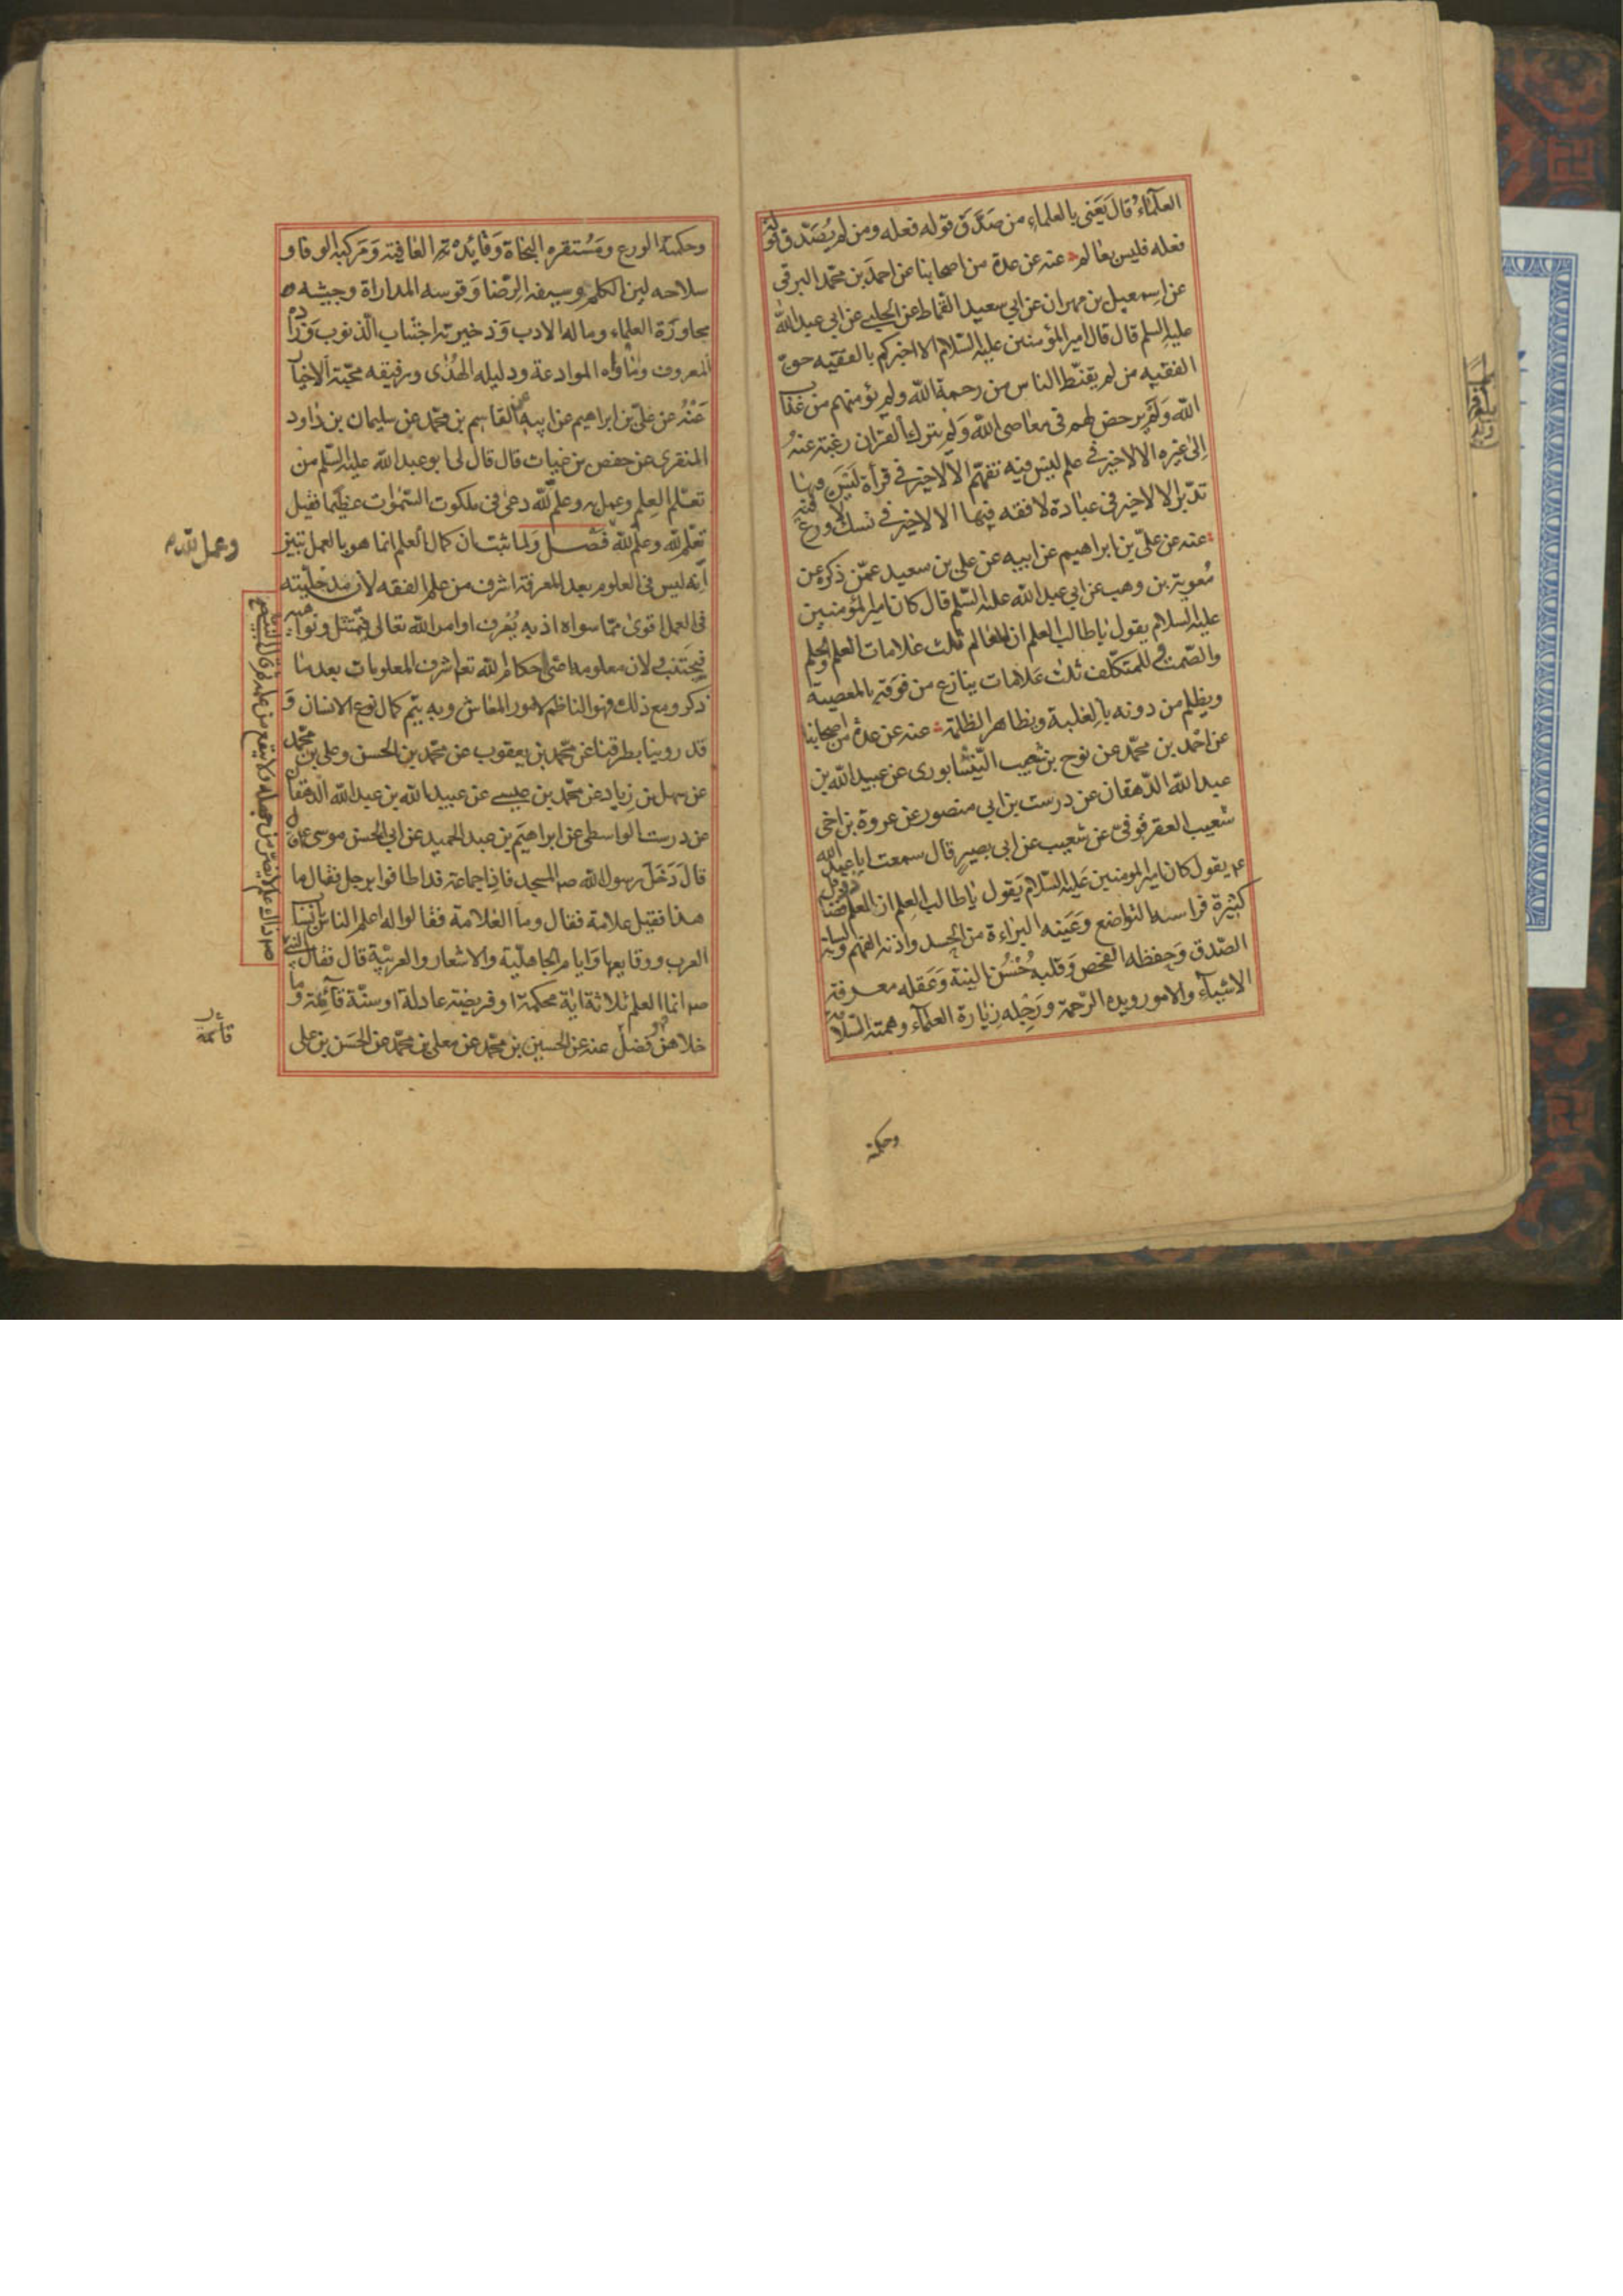 العلماء قال يعنى بالعلماء من صدق قوله فعله ومن لم يصدق قوله
فعله فليس بعالم عنه عن عدة من اصحابنا عن احمد بن محمد البرقى
عن اسمعيل بن مهران عن ابي سعيد القماط عن الحلبي عن ابى عبد الله
عليه السلم قال قال امير المؤمنين عليه السلام الا اخبركم بالفقيه حق
الفقيه من لم يقنط الناس من رحمة الله ولم يؤمنهم من عذاب
الله ولم يرخص لهم فى معاصى الله ولم يترك القران رغبة عنه
الى غيره الا لاخير فى علم ليس فيه تفهم الا لاخير فى قرأة ليس فيها
تدبر الا لاخير فى عبادة لا فقه فيها الا لاخير فى نسك لا ورع فيه
عنه عن على بن ابراهيم عن ابيه عن على بن سعيد عمن ذكره عن
معوية بن وهب عن ابي عبد الله عليه السلم قال كان امير المؤمنين
عليه السلام يقول يا طالب العلم ان للعالم ثلث علامات العلم والحلم
والصمت وللمتكلف ثلث علامات ينازع من فوقه بالمعصية
ويظلم من دونه بالغلبة ويظاهر الظلمة عنه عن عدة من اصحابنا
عن احمد بن محمد عن نوح بن شعيب النيشابورى عن عبيد الله بن
عبد الله الدهقان عن درست بن ابي منصور عن عروة بن اخى
شعيب العقرقوفى عن شعيب عن ابى بصير قال سمعت ابا عبد الله
عم يقول كان امير المومنين عليه السلام يقول يا طالب العلم ان العلم ذو فضائل
كثيرة فراسه التواضع وعينه البراءة من الحسد واذنه الفهم ولسانه
الصدق وحفظه الفحص وقلبه حسن النية وعقله معرفة
الاشياء والامور ويده الرحمة ورجله زيارة العلماء وهمته السلامة
وحكمته
وحكمته الورع ومستقره النجاة وقائده العافية ومركبه الوفا و
سلاحه لين الكلمه وسيفه الرضا وقوسه المداراة وجيشه
محاورة العلماء وماله الادب وذخيرته اجتناب الذنوب وزاده
المعروف وماؤه الموادعة ودليله الهدى ورفيقه محبة الاخيار
عنه عن على بن ابراهيم عن ابيه عن القاسم بن محمد عن سليمان بن داود
المنقرى عن حفص بن غياث قال قال لى ابو عبد الله عليه السلم من
تعلم العلم وعمل به وعلم لله دعى فى ملكوت السموات عظيما فقيل
تعلم لله وعلم لله فصل ولما ثبت ان كمال العلم انما هو بالعمل تبين
انه ليس فى العلوم بعد المعرفة اشرف من علم الفقه لان مدخليته
فى العمل اقوى مما سواه اذ به يعرف اوامر الله تعالى فيمتثل ونواهيه
فيجتنب ولان معلومه اعنى احكام الله تعا اشرف المعلومات بعد ما
ذكر ومع ذلك فهو الناظم لامور المعاش وبه يتم كمال نوع الانسان و
قد روينا بطرقنا عن محمد بن يعقوب عن محمد بن الحسن وعلى بن محمد
عن سهل بن زياد عن محمد بن عيسى عن عبيد الله بن عبد الله الدهقان
عن درست الواسطى عن ابراهيم بن عبد الحميد عن ابي الحسن موسى عم
قال دخل رسول الله صم المسجد فاذا جماعة قد اطافوا برجل فقال ما
هذا فقيل علامة فقال وما العلامة فقالوا له اعلم الناس بانساب
العرب ووقايعها وايام الجاهلية والاشعار والعربية قال فقال النبى
صم انما العلم ثلاثة اية محكمة او فريضة عادلة او سنة قائمة وما
خلاهن فهو فضل عنه عن الحسين بن محمد عن معلى بن محمد عن الحسن بن على
وعمل لله م
صم ذاك علم لا يضر من جهله ولا ينفع من علمه ثم قال النبى صم
قائمة